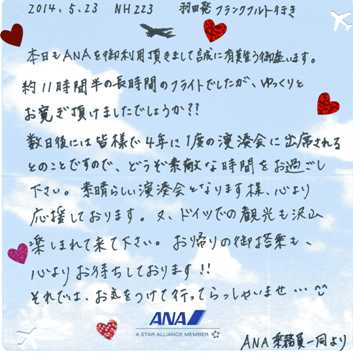 2014.5.23 NH223 羽田発フランクフルト行き
本日もANAを御利用頂きまして誠に有難う御座います。
約11時間半の長時間のフライトでしたが、ゆっくりと
お寛ぎ頂けましたでしょうか??
数日後には皆様で4年に1度の演奏会に出席される
とのことですので、どうぞ素敵な時間をお過ごし
下さい。素晴らしい演奏会となります様、心より
応援しております。又、ドイツでの観光も沢山
楽しまれて来て下さい。お帰りの御搭乗も、
心よりお待ちしております!!
それでは、お気をつけて行ってらっしゃいませ…
ANA
A STAR ALLIANCE MEMBER
ANA乗務員一同より